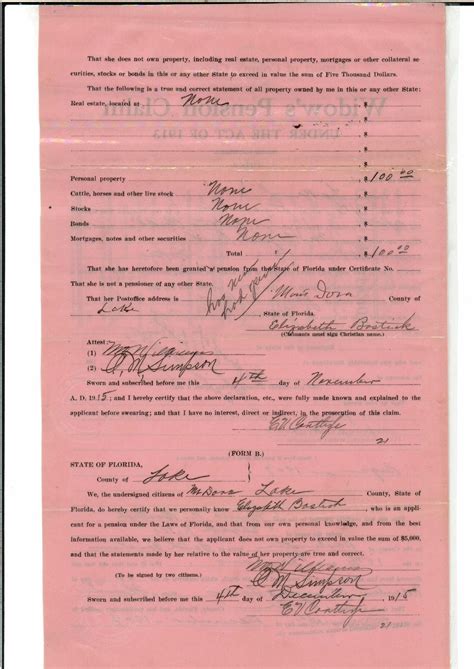 That she does not own property, including real estate, personal property, mortgages or other collateral se
curities, stocks or bonds in this or any other State to exceed in value the sum of Five Thousand Dollars.
That the following is a true and correct statement of all property owned by me in this or any other State:
Real estate, located at None $
$
$
$
$
Personal property $100.00
Cattle, horses and other live stock None $
Stocks None $
Bonds None $
Mortgages, notes and other securities None $
Total $100.00
That she has heretofore been granted a pension from the State of Florida under Certificate No.
That she is not a pensioner of any other State.
has not had
That her Postoffice address is Mount Dora County of
Lake State of Florida.
Elizabeth Bostick
(Claimants must sign Christian name.)
Attest:
(1)
(2) C M Simpson
Sworn and subscribed before me this 4th day of November
A. D. 1915; and I hereby certify that the above declaration, etc., were fully made known and explained to the
applicant before swearing; and that I have no interest, direct or indirect, in the prosecution of this claim.
21
(FORM B.)
STATE OF FLORIDA,
County of Lake
We, the undersigned citizens of Mt Dora Lake County, State of
Florida, do hereby certify that we personally know Elizabeth Bostick, who is an appli-
cant for a pension under the Laws of Florida, and that from our own personal knowledge, and from the best
information available, we believe that the applicant does not own property to exceed in value the sum of $5,000,
and that the statements made by her relative to the value of her property are true and correct.
(To be signed by two citizens.) C M Simpson
Sworn and subscribed before me this 4th day of December, 1915
21